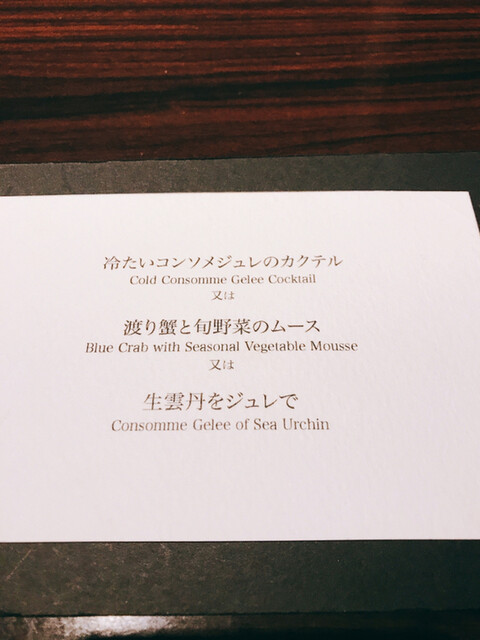 冷たいコンソメジュレのカクテル
Cold Consomme Gelee Cocktail
又は
渡り蟹と旬野菜のムース
Blue Crab with Seasonal Vegetable Mousse
又は
生雲丹をジュレで
Consomme Gelee of Sea Urchin